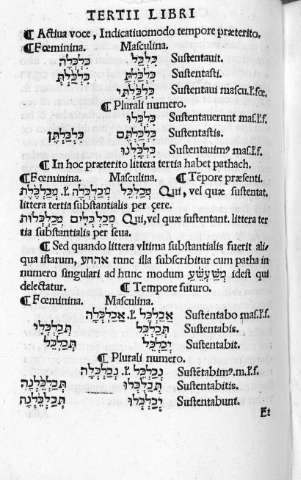 TERTII LIBRI
¶ Actiua voce, Indicatiuomodo tempore præterito.
¶ Fœminina. Masculina.
כִּלְכְּלָה כִּלְכֵּל Sustentauit.
כִּלְכַּלְתְּ כִּלְכַּלְתָּ Sustentasti.
כִּלְכַּלְתִּי Sustentaui mascu.
¶ Plurali numero.
כִּלְכְּלוּ Sustentauerunt
כִּלְכַּלְתֶּן כִּלְכַּלְתֶּם Sustentastis.
כִּלְכַּלְנוּ
¶ In hoc præterito littera tertia habet pathach.
¶ Fœminina. Masculina. ¶ Tēpore præsenti.
מְכַלְכֵּל Qui, vel quæ sustentat,
littera tertia substantialis per çere.
מְכַלְכְּלִים מְכַלְכְּלוֹת Qui, vel quæ sustentant. littera ter
tia substantialis per seua.
¶ Sed quando littera vltima substantialis fuerit ali
qua istarum, אהחע tunc illa subscribitur cum patha in
numero singulari ad hunc modum מְשַׁעֲשֵׁעַ idest qui
delectatur. ¶ Tempore futuro.
¶ Fœminina. Masculina.
אֲכַלְכֵּל Sustentabo
תְּכַלְכְּלִי תְּכַלְכֵּל Sustentabis.
תְּכַלְכֵּל יְכַלְכֵּל Sustentabit.
¶ Plurali numero.
נְכַלְכֵּל
תְּכַלְכֵּלְנָה תְּכַלְכְּלוּ Sustentabitis.
תְּכַלְכֵּלְנָה יְכַלְכְּלוּ Sustentabunt.
Et